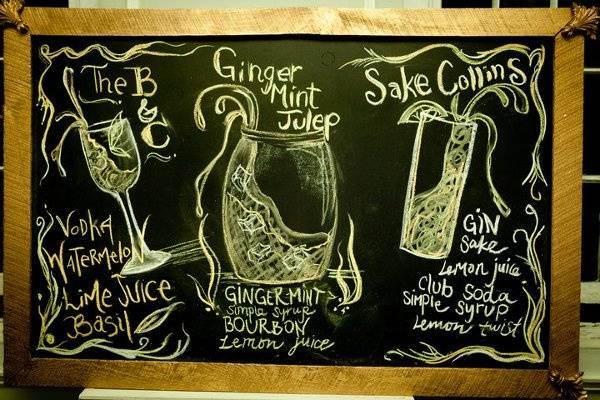 The B
&
C
Vodka
Watermelon
Lime Juice
Basil
Ginger
Mint
Julep
GINGER-MINT
simple syrup
BOURBON
Lemon juice
Sake Collins
GIN
Sake
Lemon juice
Club Soda
Simple Syrup
Lemon twist